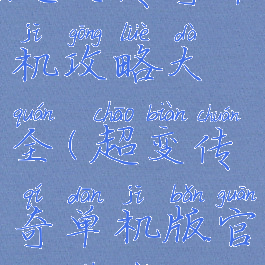 jī gōng lüè dà
机攻略大
quán chāo biàn chuán
全(超变传
qí dān jī bǎn guān
奇单机版官